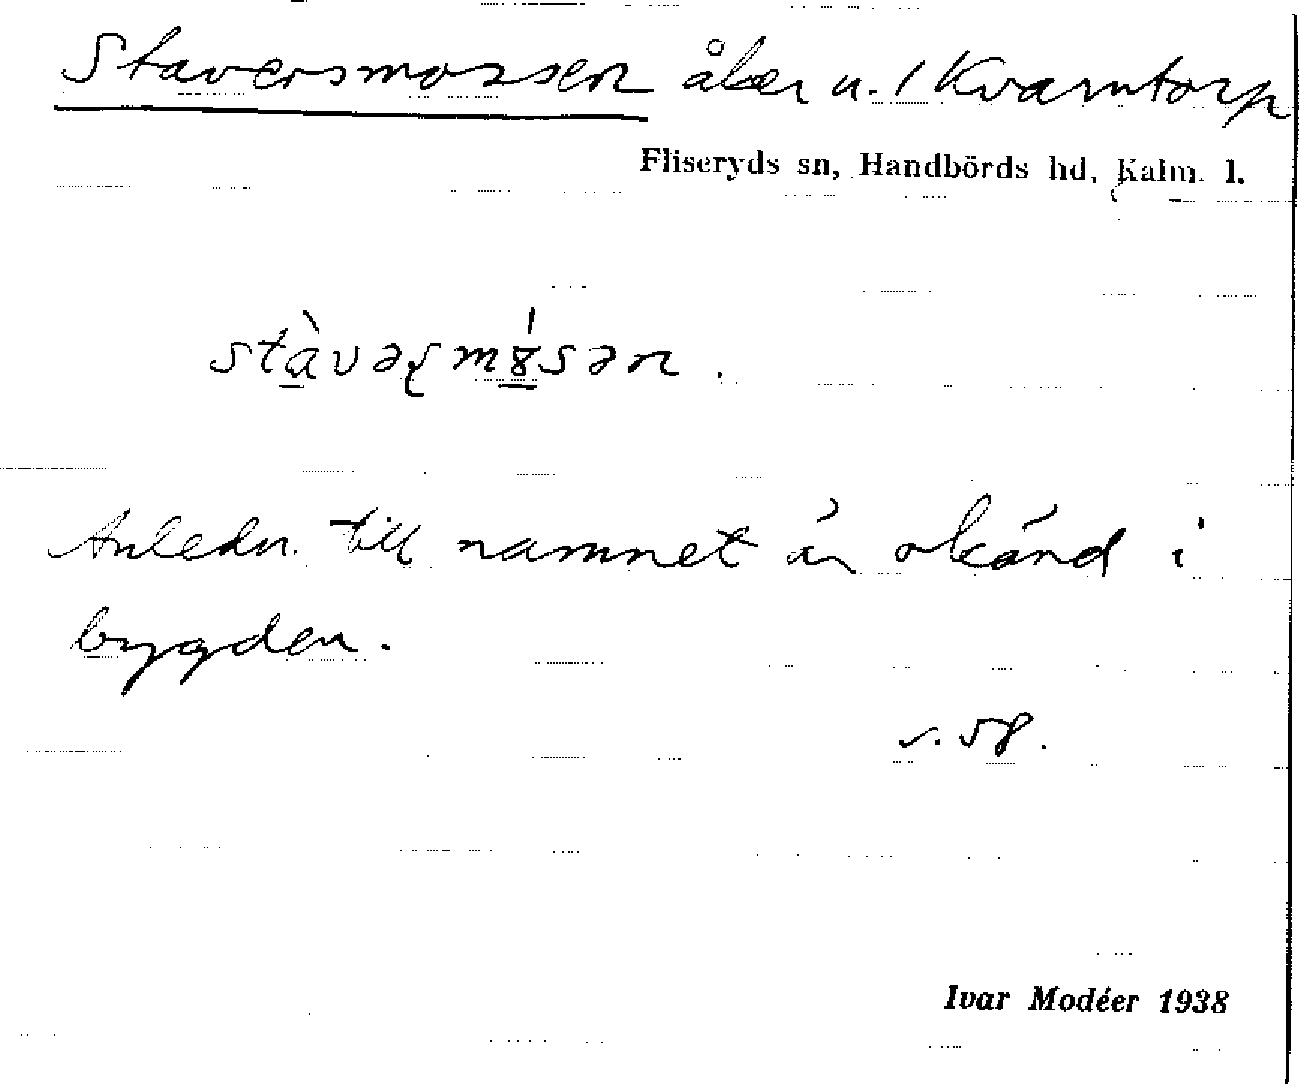 Staversmossen åker u. / Kvarntorp
Fliseryds sn, Handbörds hd, Kalm. l.
stàvəʂmɤ́sən.
Anledn. till namnet är okänd i
bygden.
s. 58.
Ivar Modéer 1938